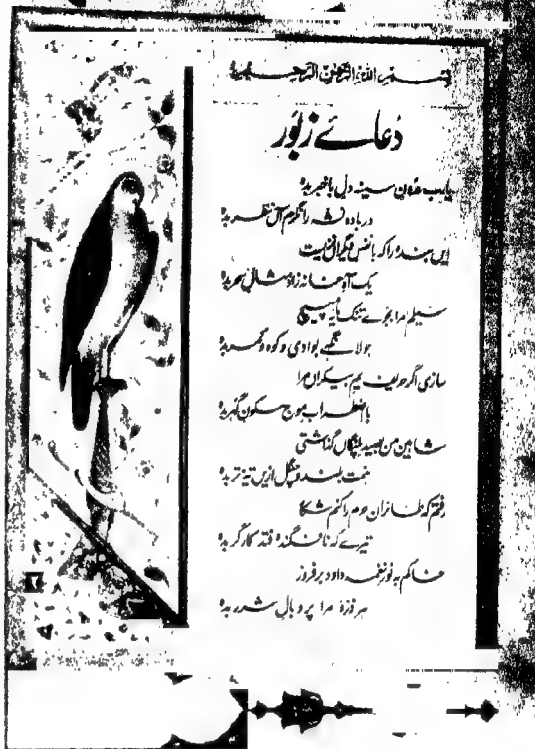 بسم اللہ الرحمن الرحیم
دُعائے زبُور
یارب درون سینہ دل باخبر بدہ
در بادہ نشہ را نگرم آں نظر بدہ
ایں بندہ را کہ با نفس دیگراں نزیست
یک آہ خانہ زاد مثال سحر بدہ
سیلم مرا بجوئے تنک مایۂ مپیچ
جولانگہے بوادی و کوہ و کمر بدہ
سازی اگر حریف یم بیکراں مرا
با اضطراب موج سکون گہر بدہ
شاہین من بصید پلنگاں گذاشتی
ہمت بلند و چنگل ازیں تیز تر بدہ
رفتم کہ طائران حرم را کنم شکار
تیرے کہ نافگندہ فتد کارگر بدہ
خاکم بہ نور نغمۂ داود بر فروز
ہر ذرۂ مرا پر و بال شرر بدہ